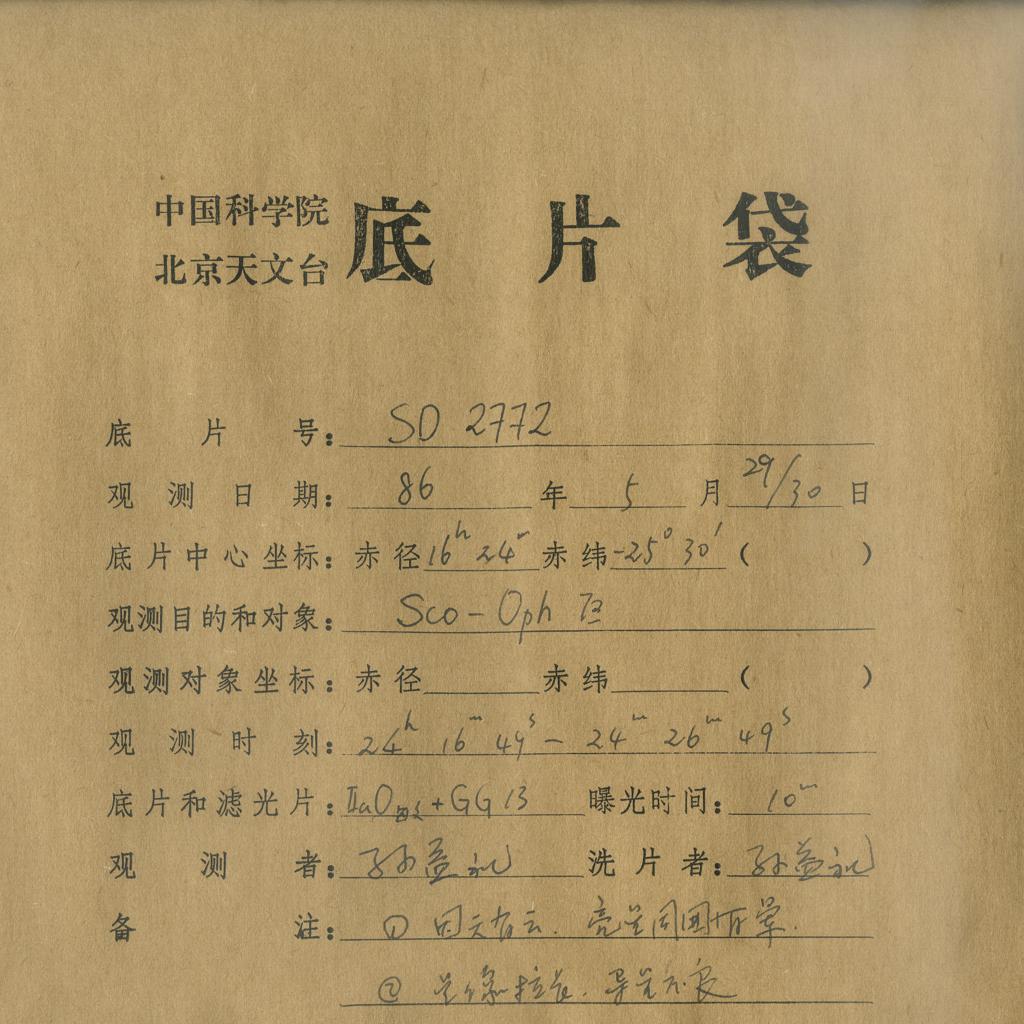 中国科学院
北京天文台
底片袋
底片号：SD 2772
观测日期：86年5月29/30日
底片中心坐标：赤径16ʰ 24ᵐ赤纬-25° 30′（ ）
观测目的和对象：Sco-Oph 区
观测对象坐标：赤径 赤纬 （ ）
观测时刻：24ʰ 16ᵐ 49ˢ - 24ᵐ 26ᵐ 49ˢ
底片和滤光片：IIaO + GG 13 曝光时间：10ᵐ
观测者：孙益礼 洗片者：孙益礼
备注：① 因天有云. 亮星周围有晕.
② 星像拉长. 导星不良